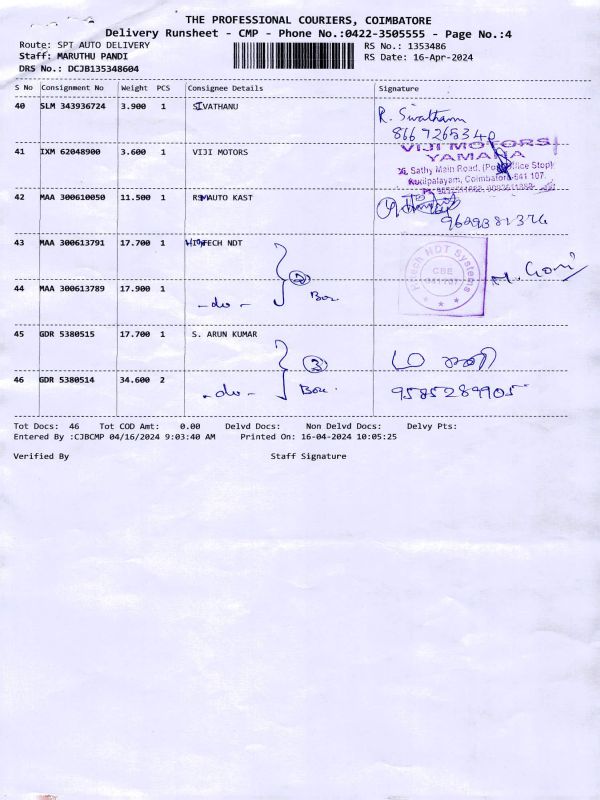 THE PROFESSIONAL COURIERS, COIMBATORE
Delivery Runsheet - CMP - Phone No.:0422-3505555 - Page No.:4
Route: SPT AUTO DELIVERY RS No.: 1353486
Staff: MARUTHU PANDI RS Date: 16-Apr-2024
DRS No.: DCJB135348604
S No Consignment No Weight PCS Consignee Details Signature
40 SLM 343936724 3.900 1 SIVATHANU
R. Sivathanu
8667268340
41 IXM 62048900 3.600 1 VIJI MOTORS
VIJI MOTORS
YAMAHA
Sathy Main Road, (Post Office Stop)
Kurumbapalayam, Coimbatore-641 107.
42 MAA 300610050 11.500 1 RSM AUTO KAST
9629381376
43 MAA 300613791 17.700 1 HITECH NDT
Hitech NDT Systems
CBE
44 MAA 300613789 17.900 1 -do- 2 Box
M. Gomi
45 GDR 5380515 17.700 1 S. ARUN KUMAR
46 GDR 5380514 34.600 2 -do- 3 Box.
9585289905
Tot Docs: 46 Tot COD Amt: 0.00 Delvd Docs: Non Delvd Docs: Delvy Pts:
Entered By :CJBCMP 04/16/2024 9:03:40 AM Printed On: 16-04-2024 10:05:25
Verified By Staff Signature